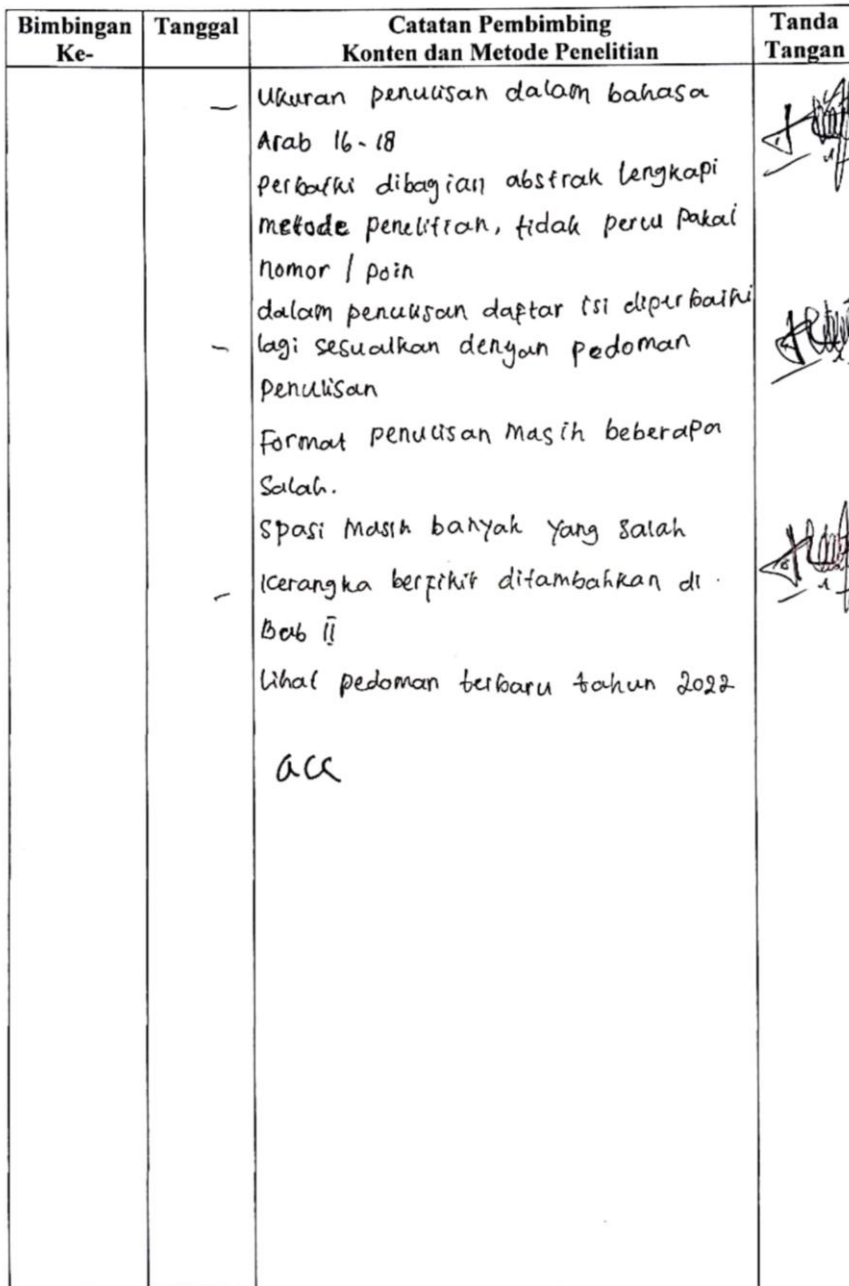 Bimbingan Ke-
Tanggal
Catatan Pembimbing
Konten dan Metode Penelitian
Tanda Tangan
– Ukuran penulisan dalam bahasa
Arab 16-18
Perbaiki dibagian abstrak lengkapi
metode penelitian, tidak perlu pakai
nomor / poin
dalam penulisan daftar isi diperbaiki
– lagi sesuaikan dengan pedoman
penulisan
Format penulisan masih beberapa
Salah.
Spasi masih banyak yang salah
– Kerangka berfikir ditambahkan di
Bab II
Lihat pedoman terbaru tahun 2022
acc